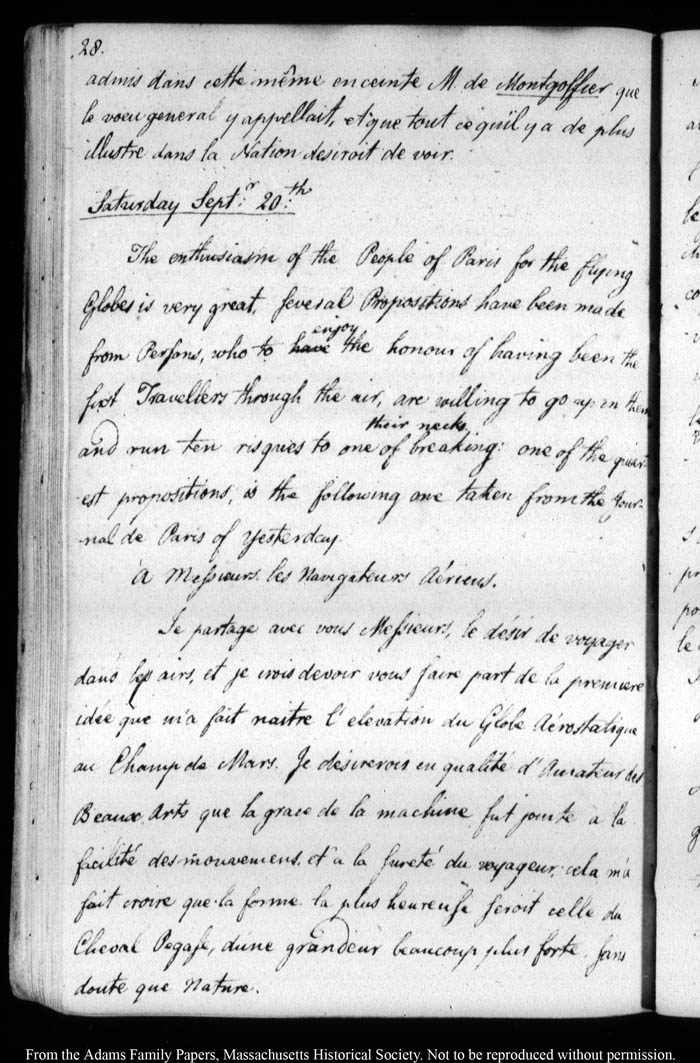 28.
admis dans cette même enceinte M. de Montgolfier que
le voeu general y appellait, et que tout ce qu'il y a de plus
illustre dans la Nation desiroit de voir.
Saturday Septr. 20th.
The enthusiasm of the People of Paris for the flying
Globes is very great, several Propositions have been made
enjoy
from Persons, who to have the honour of having been the
first Travellers through the air, are willing to go up in them
their necks.
and run ten risques to one of breaking: one of the queer-
est propositions, is the following one taken from the Jour-
nal de Paris of yesterday.
A Messieurs les Navigateurs Aériens.
Je partage avec vous Messieurs, le désir de voyager
dans les airs, et je crois devoir vous faire part de la premiere
idée que m'a fait naitre l'elevation du Globe Aérostatique
au Champ de Mars. Je désirerois en qualité d'Amateur des
Beaux Arts que la grace de la machine fut jointe à la
facilité des mouvemens, et à la sureté du voyageur, cela m'a
fait croire que la forme la plus heureuse seroit celle du
Cheval Pegase, d'une grandeur beaucoup plus forte sans
doute que Nature.
From the Adams Family Papers, Massachusetts Historical Society. Not to be reproduced without permission.